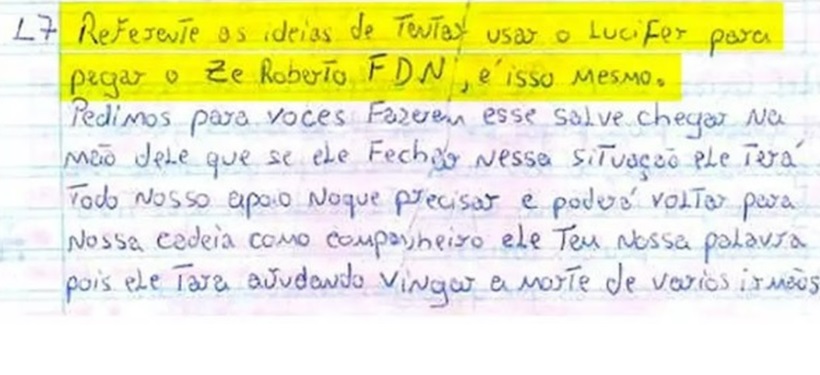 L7 Referente as ideias de Tentar usar o Lucifer para
pegar o Ze Roberto FDN, é isso mesmo.
Pedimos para voces Fazerem esse salve chegar na
mão dele que se ele Fechar nessa situação ele Terá
Todo nosso apoio noque precisar e poderá voltar para
nossa cadeia como companheiro ele Tem nossa palavra
pois ele Tara ajudando vingar a morte de varios irmãos